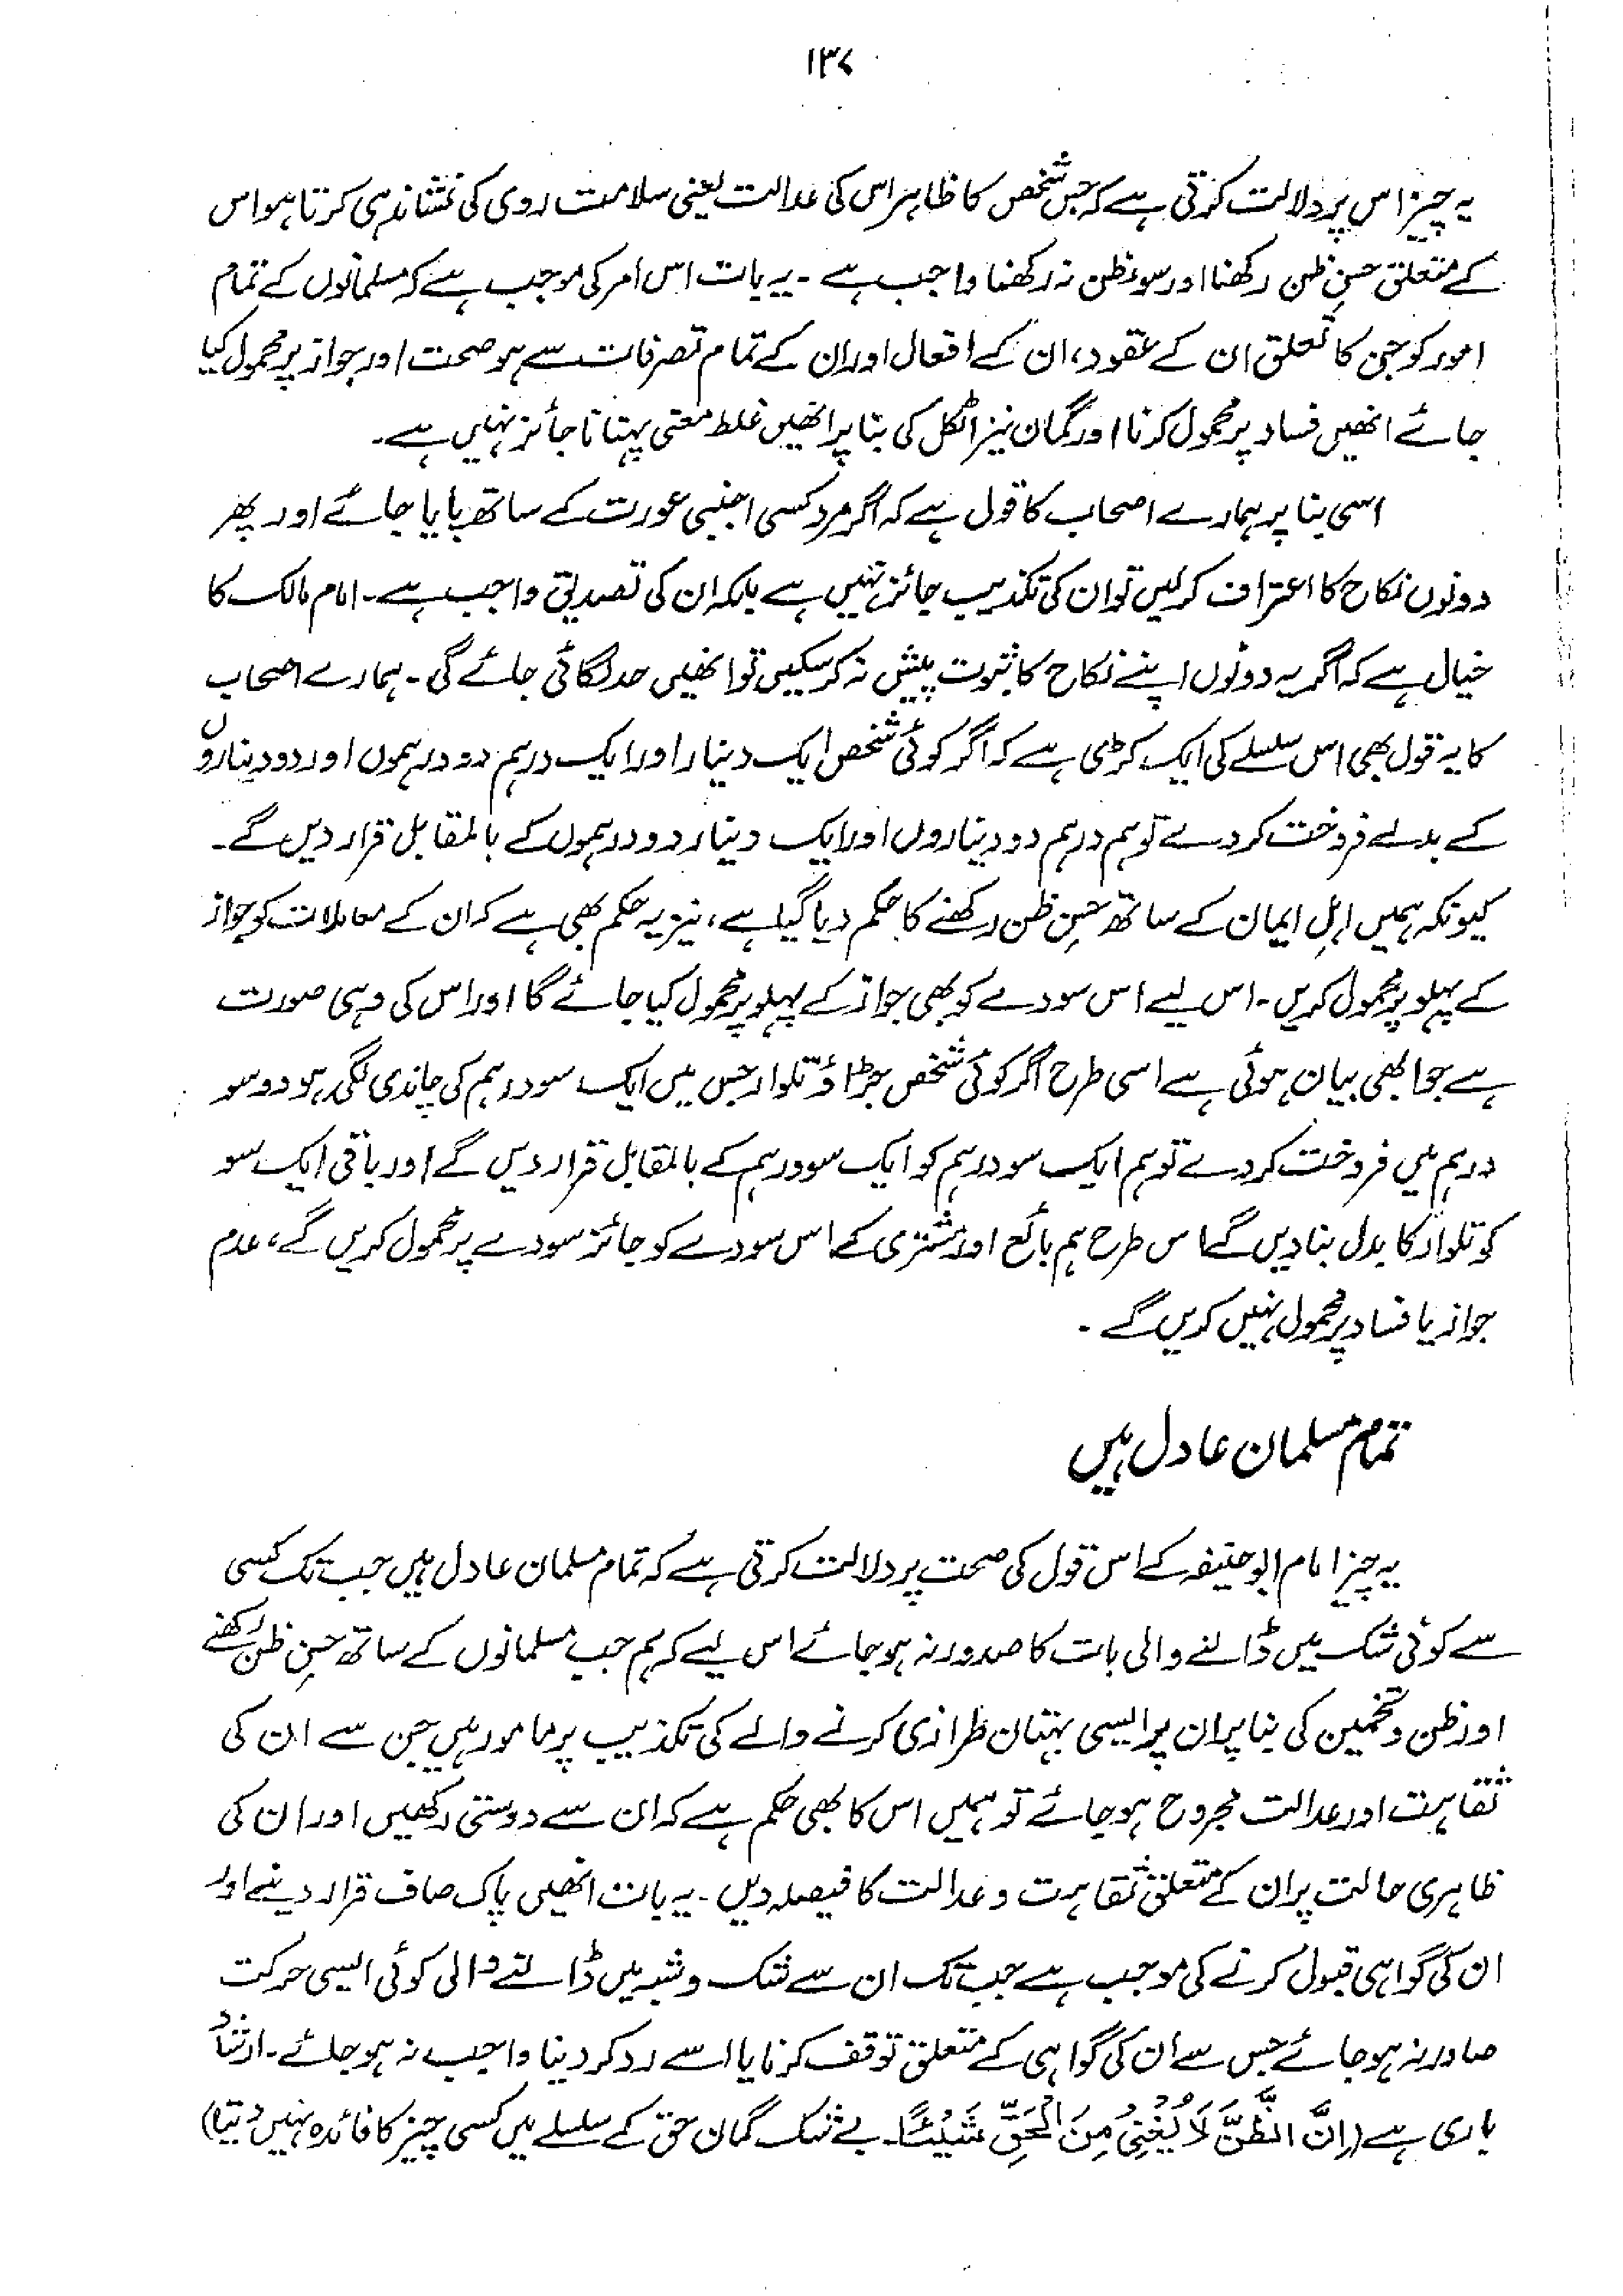 ۱۳۷
یہ چیز اس پر دلالت کرتی ہے کہ جس شخص کا ظاہر اس کی عدالت یعنی سلامت روی کی نشاندہی کرتا ہو اس
کے متعلق حسنِ ظن رکھنا اور سوءِ ظن نہ رکھنا واجب ہے۔ یہ بات اس امر کی موجب ہے کہ مسلمانوں کے تمام
امور کو جن کا تعلق ان کے عقود، ان کے افعال اور ان کے تمام تصرفات سے ہو صحت اور جواز پر محمول کیا
جائے انھیں فساد پر محمول کرنا اور گمان نیز اٹکل کی بنا پر انھیں غلط معنی پہنانا جائز نہیں ہے۔
اسی بنا پر ہمارے اصحاب کا قول ہے کہ اگر مرد کسی اجنبی عورت کے ساتھ پایا جائے اور پھر
دونوں نکاح کا اعتراف کرلیں تو ان کی تکذیب جائز نہیں ہے بلکہ ان کی تصدیق واجب ہے۔ امام مالک کا
خیال ہے کہ اگر یہ دونوں اپنے نکاح کا ثبوت پیش نہ کرسکیں تو انھیں حد لگائی جائے گی۔ ہمارے اصحاب
کا یہ قول بھی اس سلسلے کی ایک کڑی ہے کہ اگر کوئی شخص ایک دینار اور ایک درہم دو درہموں اور دو دیناروں
کے بدلے فروخت کردے تو ہم درہم دو دیناروں اور ایک دینار دو درہموں کے بالمقابل قرار دیں گے۔
کیونکہ ہمیں اہلِ ایمان کے ساتھ حسنِ ظن رکھنے کا حکم دیا گیا ہے، نیز یہ حکم بھی ہے کہ ان کے معاملات کو جواز
کے پہلو پر محمول کریں۔ اس لیے اس سودے کو بھی جواز کے پہلو پر محمول کیا جائے گا اور اس کی وہی صورت
ہے جو ابھی بیان ہوئی ہے اسی طرح اگر کوئی شخص جڑاؤ تلوار جس میں ایک سو درہم کی چاندی لگی ہو دو سو
درہم میں فروخت کردے تو ہم ایک سو درہم کو ایک سو درہم کے بالمقابل قرار دیں گے اور باقی ایک سو
کو تلوار کا بدل بنا دیں گے اس طرح ہم بائع اور مشتری کے اس سودے کو جائز سودے پر محمول کریں گے، عدم
جواز یا فساد پر محمول نہیں کریں گے۔
تمام مسلمان عادل ہیں
یہ چیز امام ابو حنیفہ کے اس قول کی صحت پر دلالت کرتی ہے کہ تمام مسلمان عادل ہیں جب تک کسی
سے کوئی شک میں ڈالنے والی بات کا صدور نہ ہوجائے اس لیے کہ ہم جب مسلمانوں کے ساتھ حسنِ ظن رکھنے
اور ظن و تخمین کی بنا پر ان پر ایسی بہتان طرازی کرنے والے کی تکذیب پر مامور ہیں جن سے ان کی
ثقاہت اور عدالت مجروح ہوجائے تو ہمیں اس کا بھی حکم ہے کہ ان سے دوستی رکھیں اور ان کی
ظاہری حالت پر ان کے متعلق ثقاہت و عدالت کا فیصلہ دیں۔ یہ بات انھیں پاک صاف قرار دینے اور
ان کی گواہی قبول کرنے کی موجب ہے جب تک ان سے شک و شبہ میں ڈالنے والی کوئی ایسی حرکت
صادر نہ ہوجائے جس سے ان کی گواہی کے متعلق توقف کرنا یا اسے رد کردینا واجب نہ ہوجائے۔ ارشاد
باری ہے (اِنَّ الظَّنَّ لَا یُغْنِیْ مِنَ الْحَقِّ شَیْئًا۔ بے شک گمان حق کے سلسلے میں کسی چیز کا فائدہ نہیں دیتا)